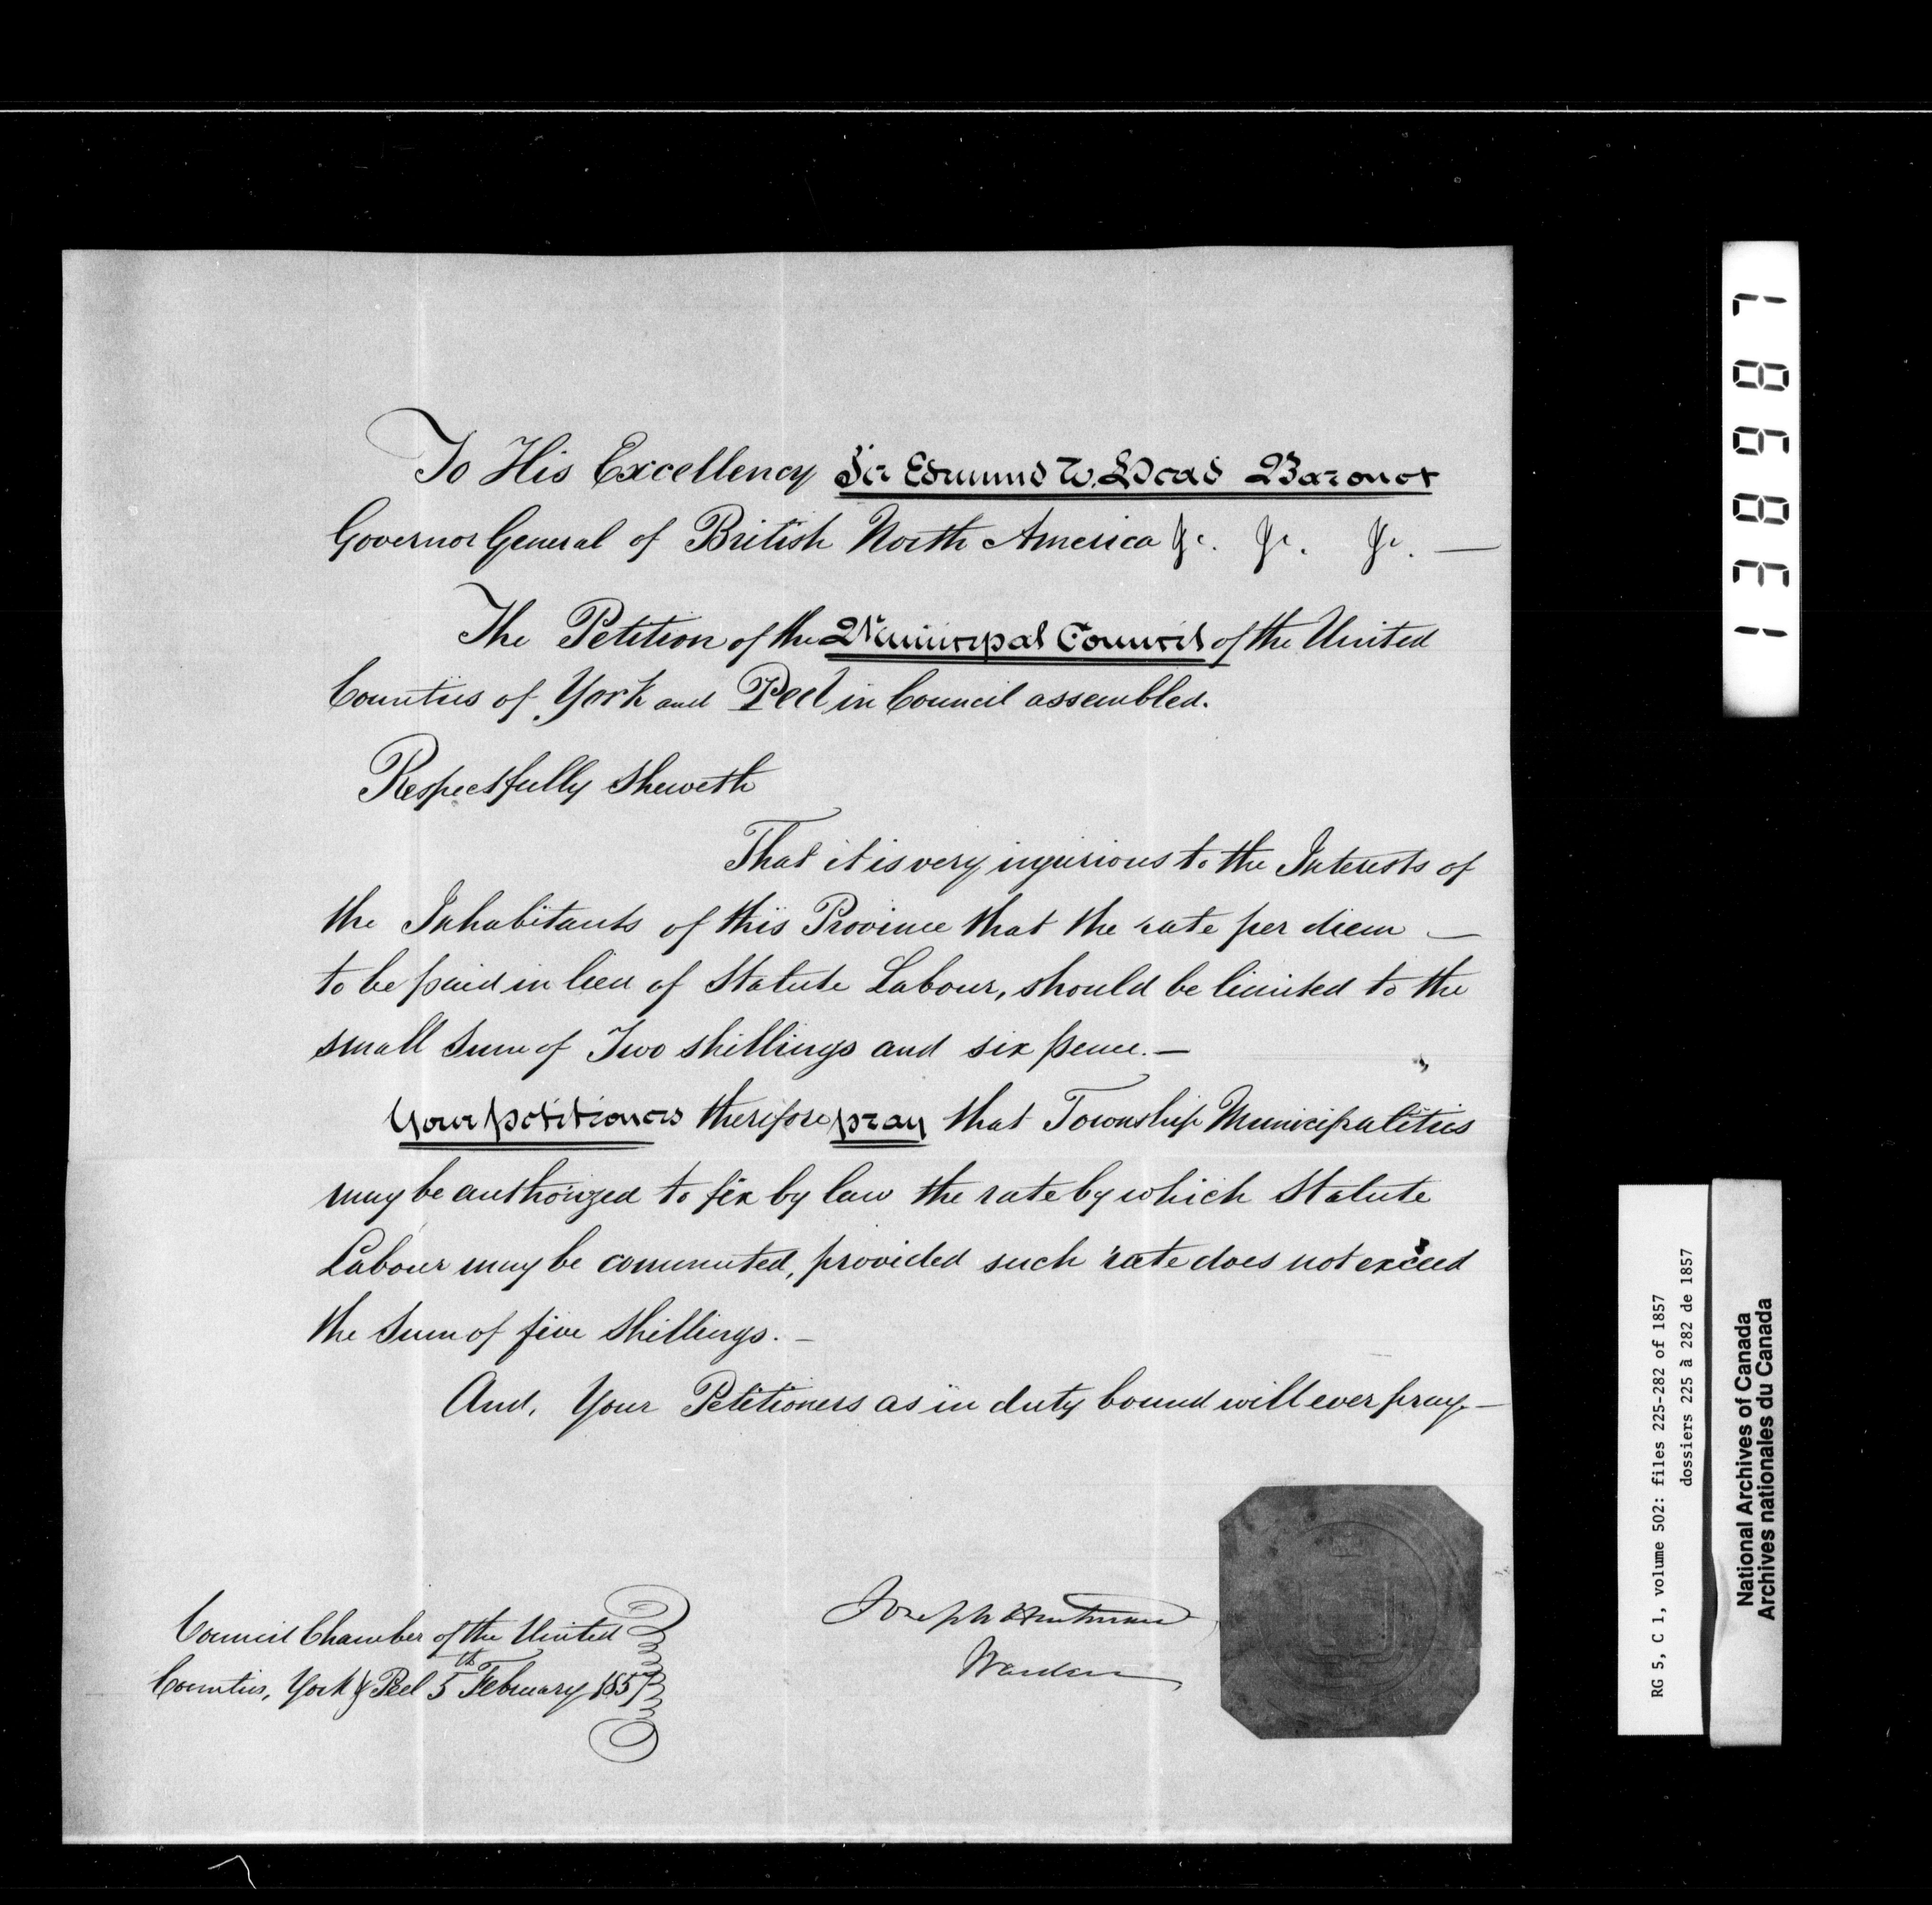 To His Excellency Sir Edmund W. Head Baronet
Governor General of British North America &c. &c. &c. —
The Petition of the Municipal Council of the United
Counties of York and Peel in Council assembled.
Respectfully Sheweth
That it is very injurious to the Interests of
the Inhabitants of this Province that the rate per diem —
to be paid in lieu of Statute Labour, should be limited to the
small Sum of Two shillings and six pence. —
Your petitioners therefore pray that Township Municipalities
may be authorized to fix by law the rate by which Statute
Labour may be commuted, provided such rate does not exceed
the Sum of five Shillings. —
And, Your Petitioners as in duty bound will ever pray. —
Joseph Hartman
Warden
Council Chamber of the United
Counties, York & Peel 5th February 1857
138987
RG 5, C 1, volume 502: files 225-282 of 1857
dossiers 225 à 282 de 1857
National Archives of Canada
Archives nationales du Canada